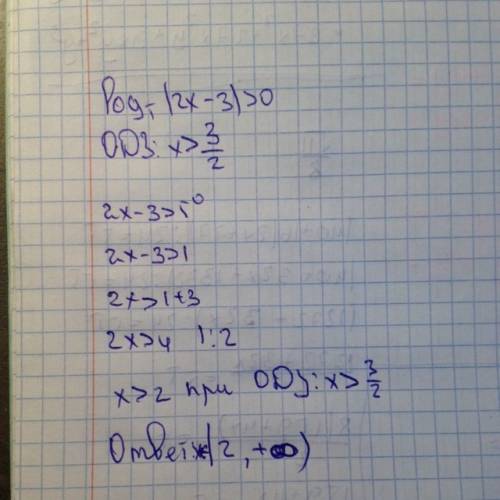 log₅(2x-3)>0
ОДЗ: x>3/2
2x-3>5⁰
2x-3>1
2x>1+3
2x>4 |:2
x>2 при ОДЗ: x>3/2
Ответ: (2,+∞)